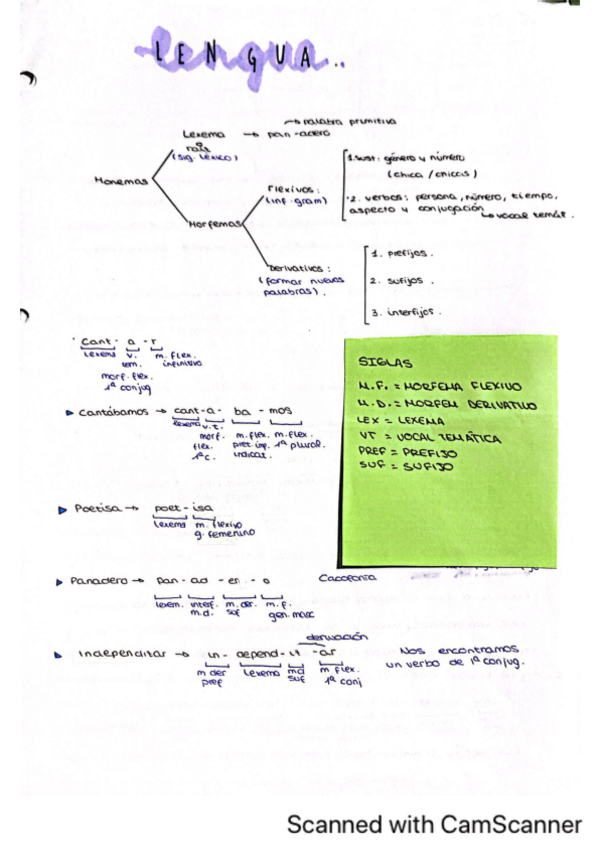 LENGUA..
→ palabra primitiva
Lexema → pan-adero
raíz
(sig. léxico)
Monemas
Morfemas
Flexivos:
(inf. gram)
1. sust: género y número
(chica / chicas)
2. verbos: persona, número, tiempo,
aspecto y conjugación
↳ vocal temát.
Derivativos:
(formar nuevas
palabras).
1. prefijos.
2. sufijos.
3. interfijos.
Cant - a - r
Lexema v. m. flex.
tem. infinitivo
morf. flex.
1ª conjug
Cantábamos → cant-a- ba - mos
lexema v.t. 
morf. m. flex. m. flex.
flex. pret. imp. 1ª plural.
1ª c. indicat.
SIGLAS
M.F. = MORFEMA FLEXIVO
M.D. = MORFEM DERIVATIVO
LEX = LEXEMA
VT = VOCAL TEMÁTICA
PREF = PREFIJO
SUF = SUFIJO
Poetisa → poet - isa
Lexema m. flexivo
g. femenino
Panadero → pan - ad - er - o
Cacofonía
lexem. interf. m. der. m. f.
m.d. suf gen. masc
derivación
Independitar → in - depend - it - ar
m der Lexema md m flex.
pref suf 1ª conj
Nos encontramos
un verbo de 1ª conjug.
Scanned with CamScanner